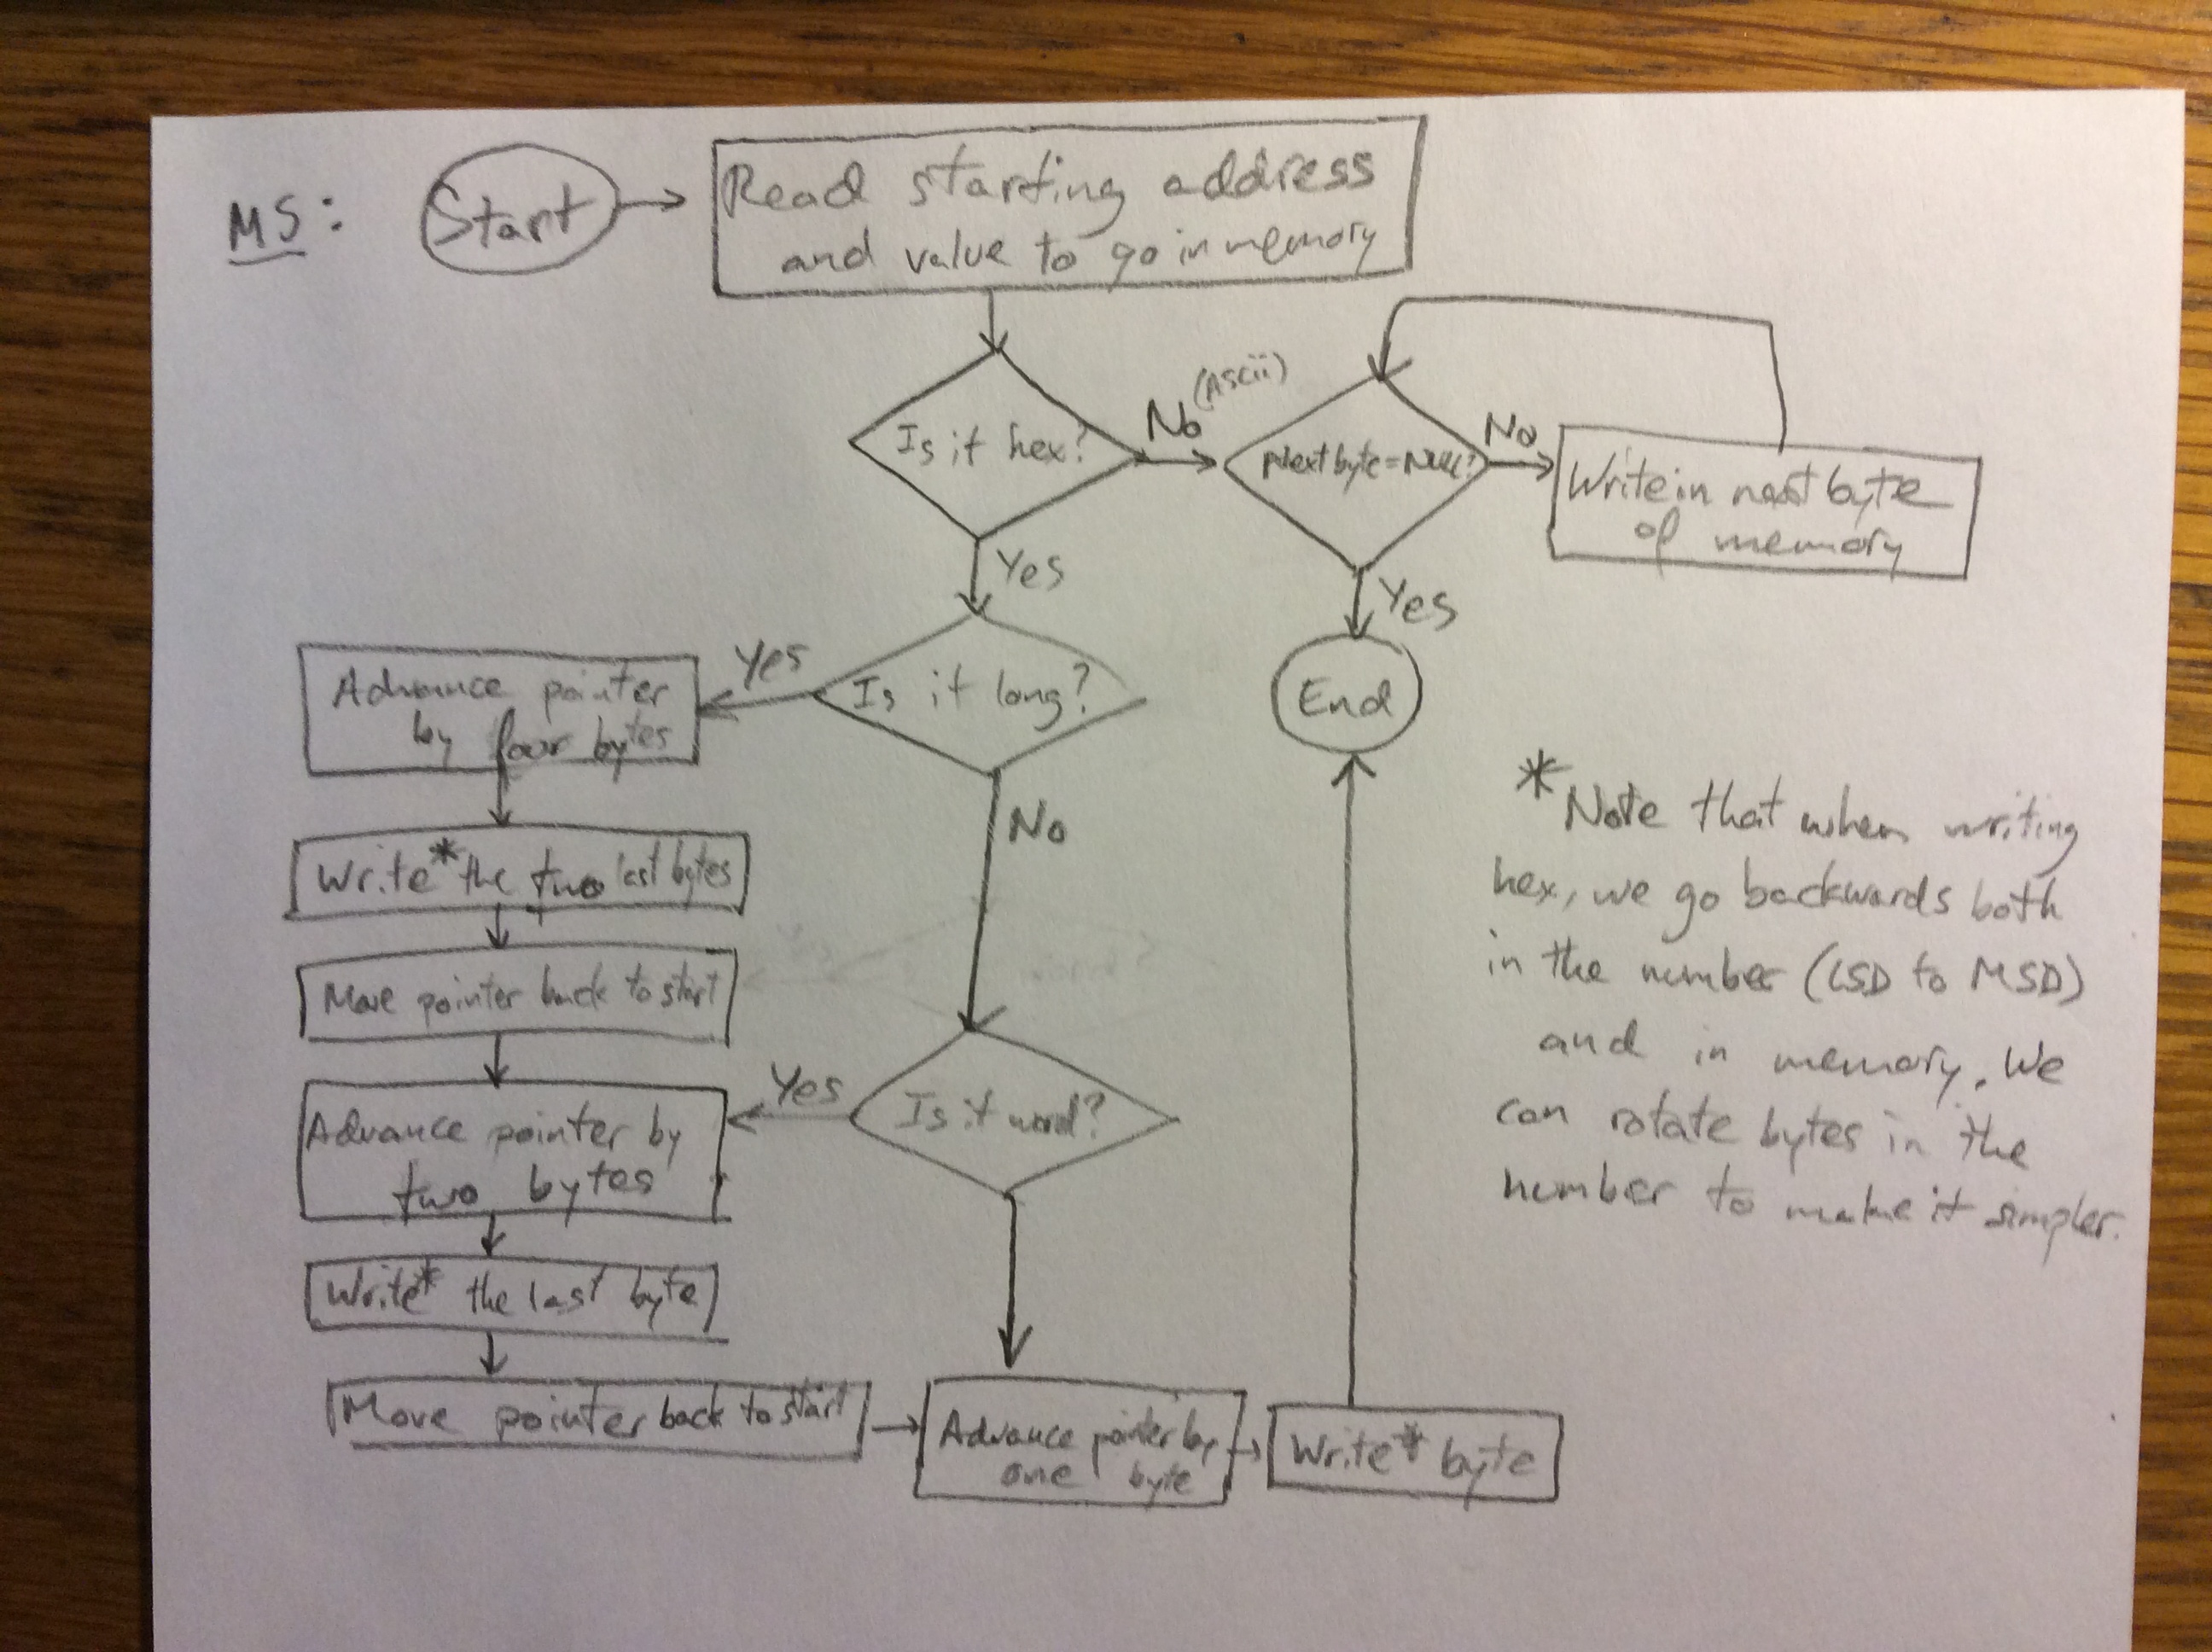 MS:
Start
Read starting address
and value to go in memory
Is it hex?
No (Ascii)
Next byte = NULL?
No
Write in next byte
of memory
Yes
Yes
End
Is it long?
Yes
Advance pointer
by four bytes
No
Write* the two last bytes
Move pointer back to start
Is it word?
Yes
Advance pointer by
two bytes
Write* the last byte
Move pointer back to start
Advance pointer by
one byte
Write* byte
*Note that when writing
hex, we go backwards both
in the number (LSD to MSD)
and in memory. We
can rotate bytes in the
number to make it simpler.